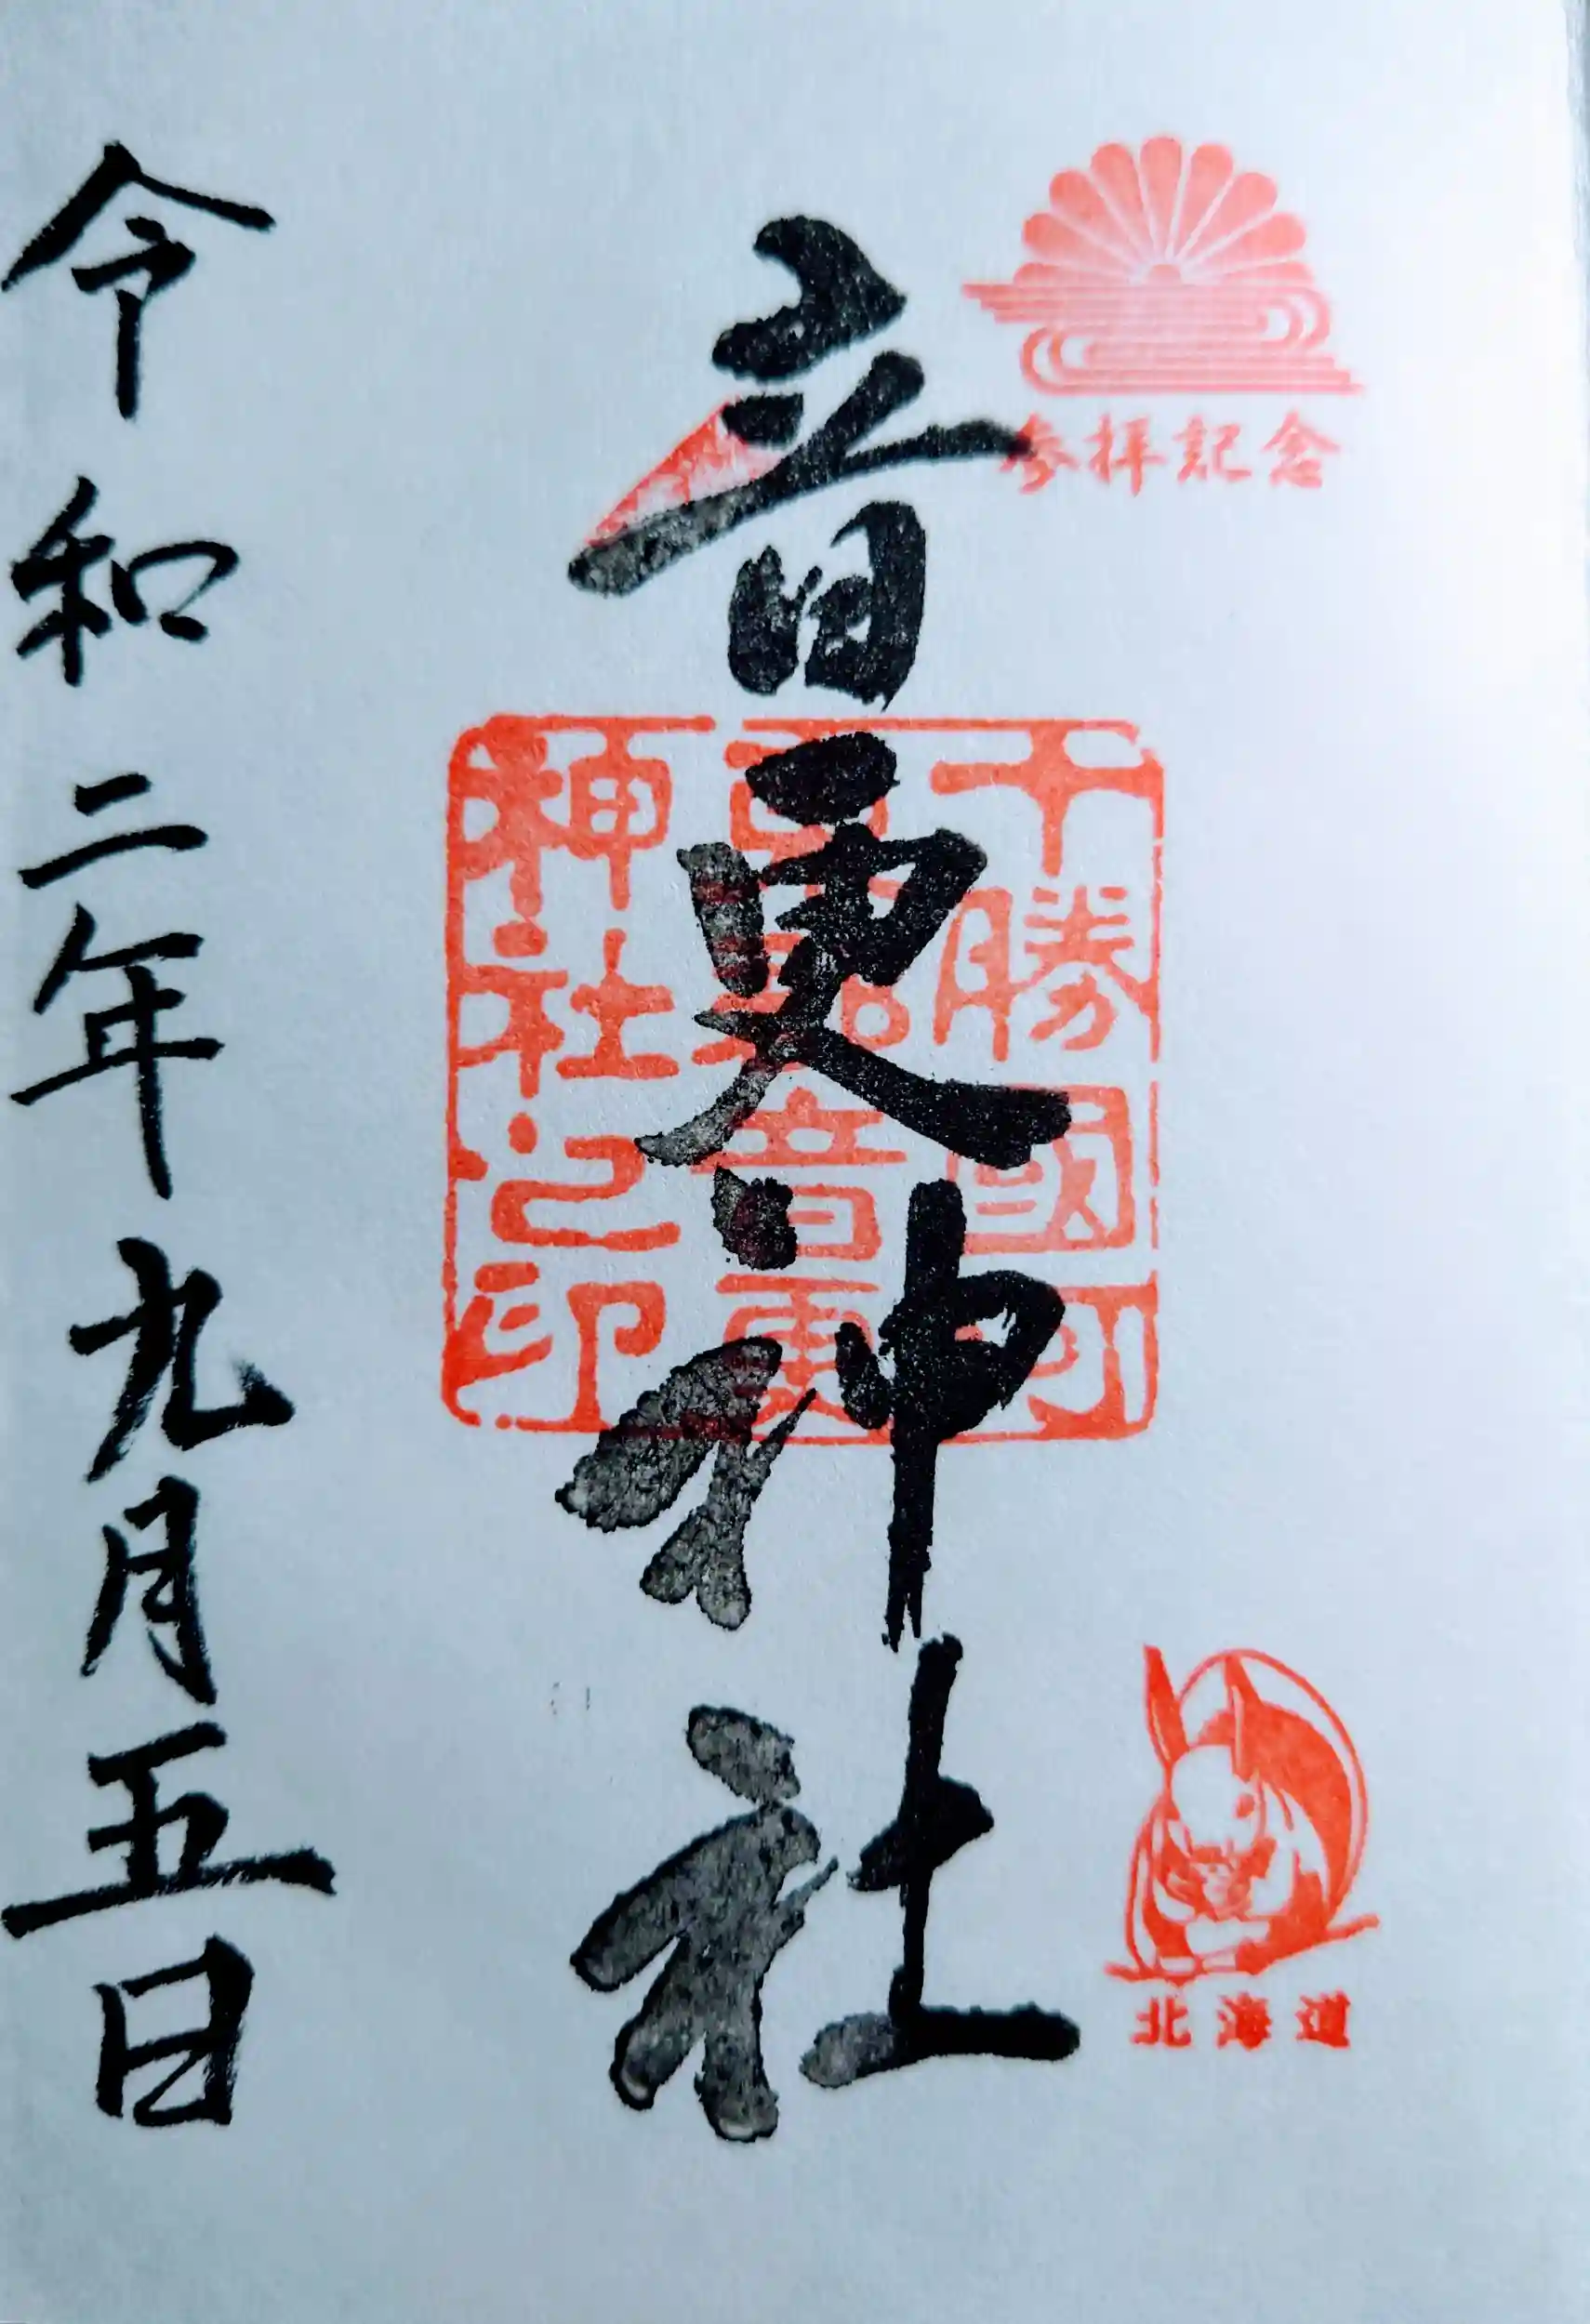 参拝記念
音更神社
十勝國河
西郡音更
神社之印
北海道
令和二年九月五日